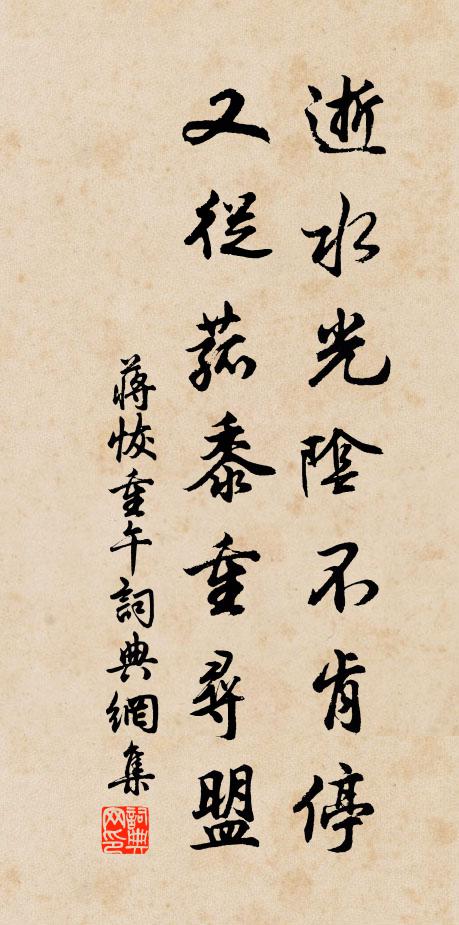 逝水光陰不肯停
又從菰黍重尋盟
蔣恢重午詞典網集
詞典網印